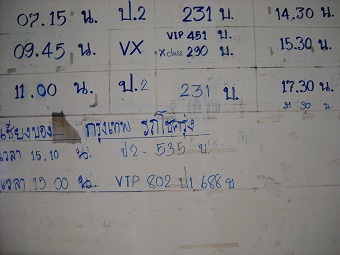 07.15 น. ป.2 231 บ. 14.30 น.
09.45 น. VX VIP 451 บ. X class 290 บ. 15.30 น.
11.00 น. ป.2 231 บ. 17.30 น.
21.30 น
เชียงของ กรุงเทพ รถโชครุ่ง
เวลา 15.10 น. ป2 - 535 บ
เวลา 15.00 น. VIP 802 ป1 688 บ